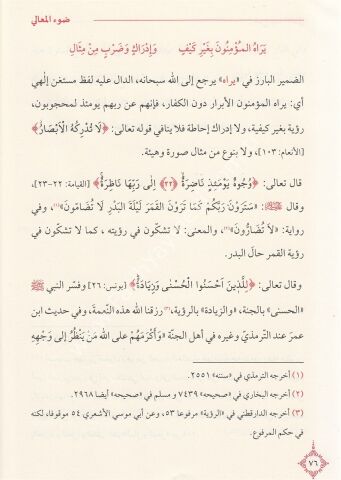 ضوء المعالي
يَرَاهُ المُؤْمِنُونَ بِغَيْرِ كَيْفٍ وَإِدْرَاكٍ وَضَرْبٍ مِنْ مِثَالِ
الضمير البارز في «يراه» يرجع إلى الله سبحانه، الدال عليه لفظ مستغن إلٰهي
أي: يراه المؤمنون الأبرار دون الكفار، فإنهم عن ربهم يومئذ لمحجوبون،
رؤية بغير كيفية، ولا إدراك إحاطة فلا ينافي قوله تعالى: ﴿لَا تُدْرِكُهُ الْأَبْصَارُ﴾
[الأنعام: ١٠٣]، ولا بنوع من مثال صورة وهيئة.
قال تعالى: ﴿وُجُوهٌ يَوْمَئِذٍ نَاضِرَةٌ (٢٢) إِلَى رَبِّهَا نَاظِرَةٌ﴾ [القيامة: ٢٢-٢٣]،
وقال ﷺ: «سَتَرَوْنَ رَبَّكُمْ كَمَا تَرَوْنَ القَمَرَ لَيْلَةَ البَدْرِ لَا تُضَامُّونَ»(١)، وفي
رواية: «لَا تُضَارُّونَ»(٢)، والمعنى: لا تشكّون في رؤيته ، كما لا تشكّون في
رؤية القمر حالَ البدر.
وقال تعالى: ﴿لِلَّذِينَ أَحْسَنُوا الْحُسْنَى وَزِيَادَةٌ﴾ [يونس: ٢٦] وفسّر النبي ﷺ
«الحسنى» بالجنة، و«الزيادة» بالرؤية،(٣) رزقنا الله هذه النّعمة، وفي حديث ابن
عمرَ عند الترمذيّ وغيره في أهل الجنّة «وَأَكْرَمُهُمْ على الله مَن يَنظُرُ إلى وَجْهِهِ
(١) أخرجه الترمذي في «سننه» ٢٥٥١.
(٢) أخرجه البخاري في «صحيحه» ٧٤٣٩ و مسلم في «صحيحه» أيضا ٢٩٦٨.
(٣) أخرجه الدارقطني في «الرؤية» مرفوعا ٥٣، وعن أبي موسى الأشعري ٥٤ موقوفا، لكنه
في حكم المرفوع.
٧٦